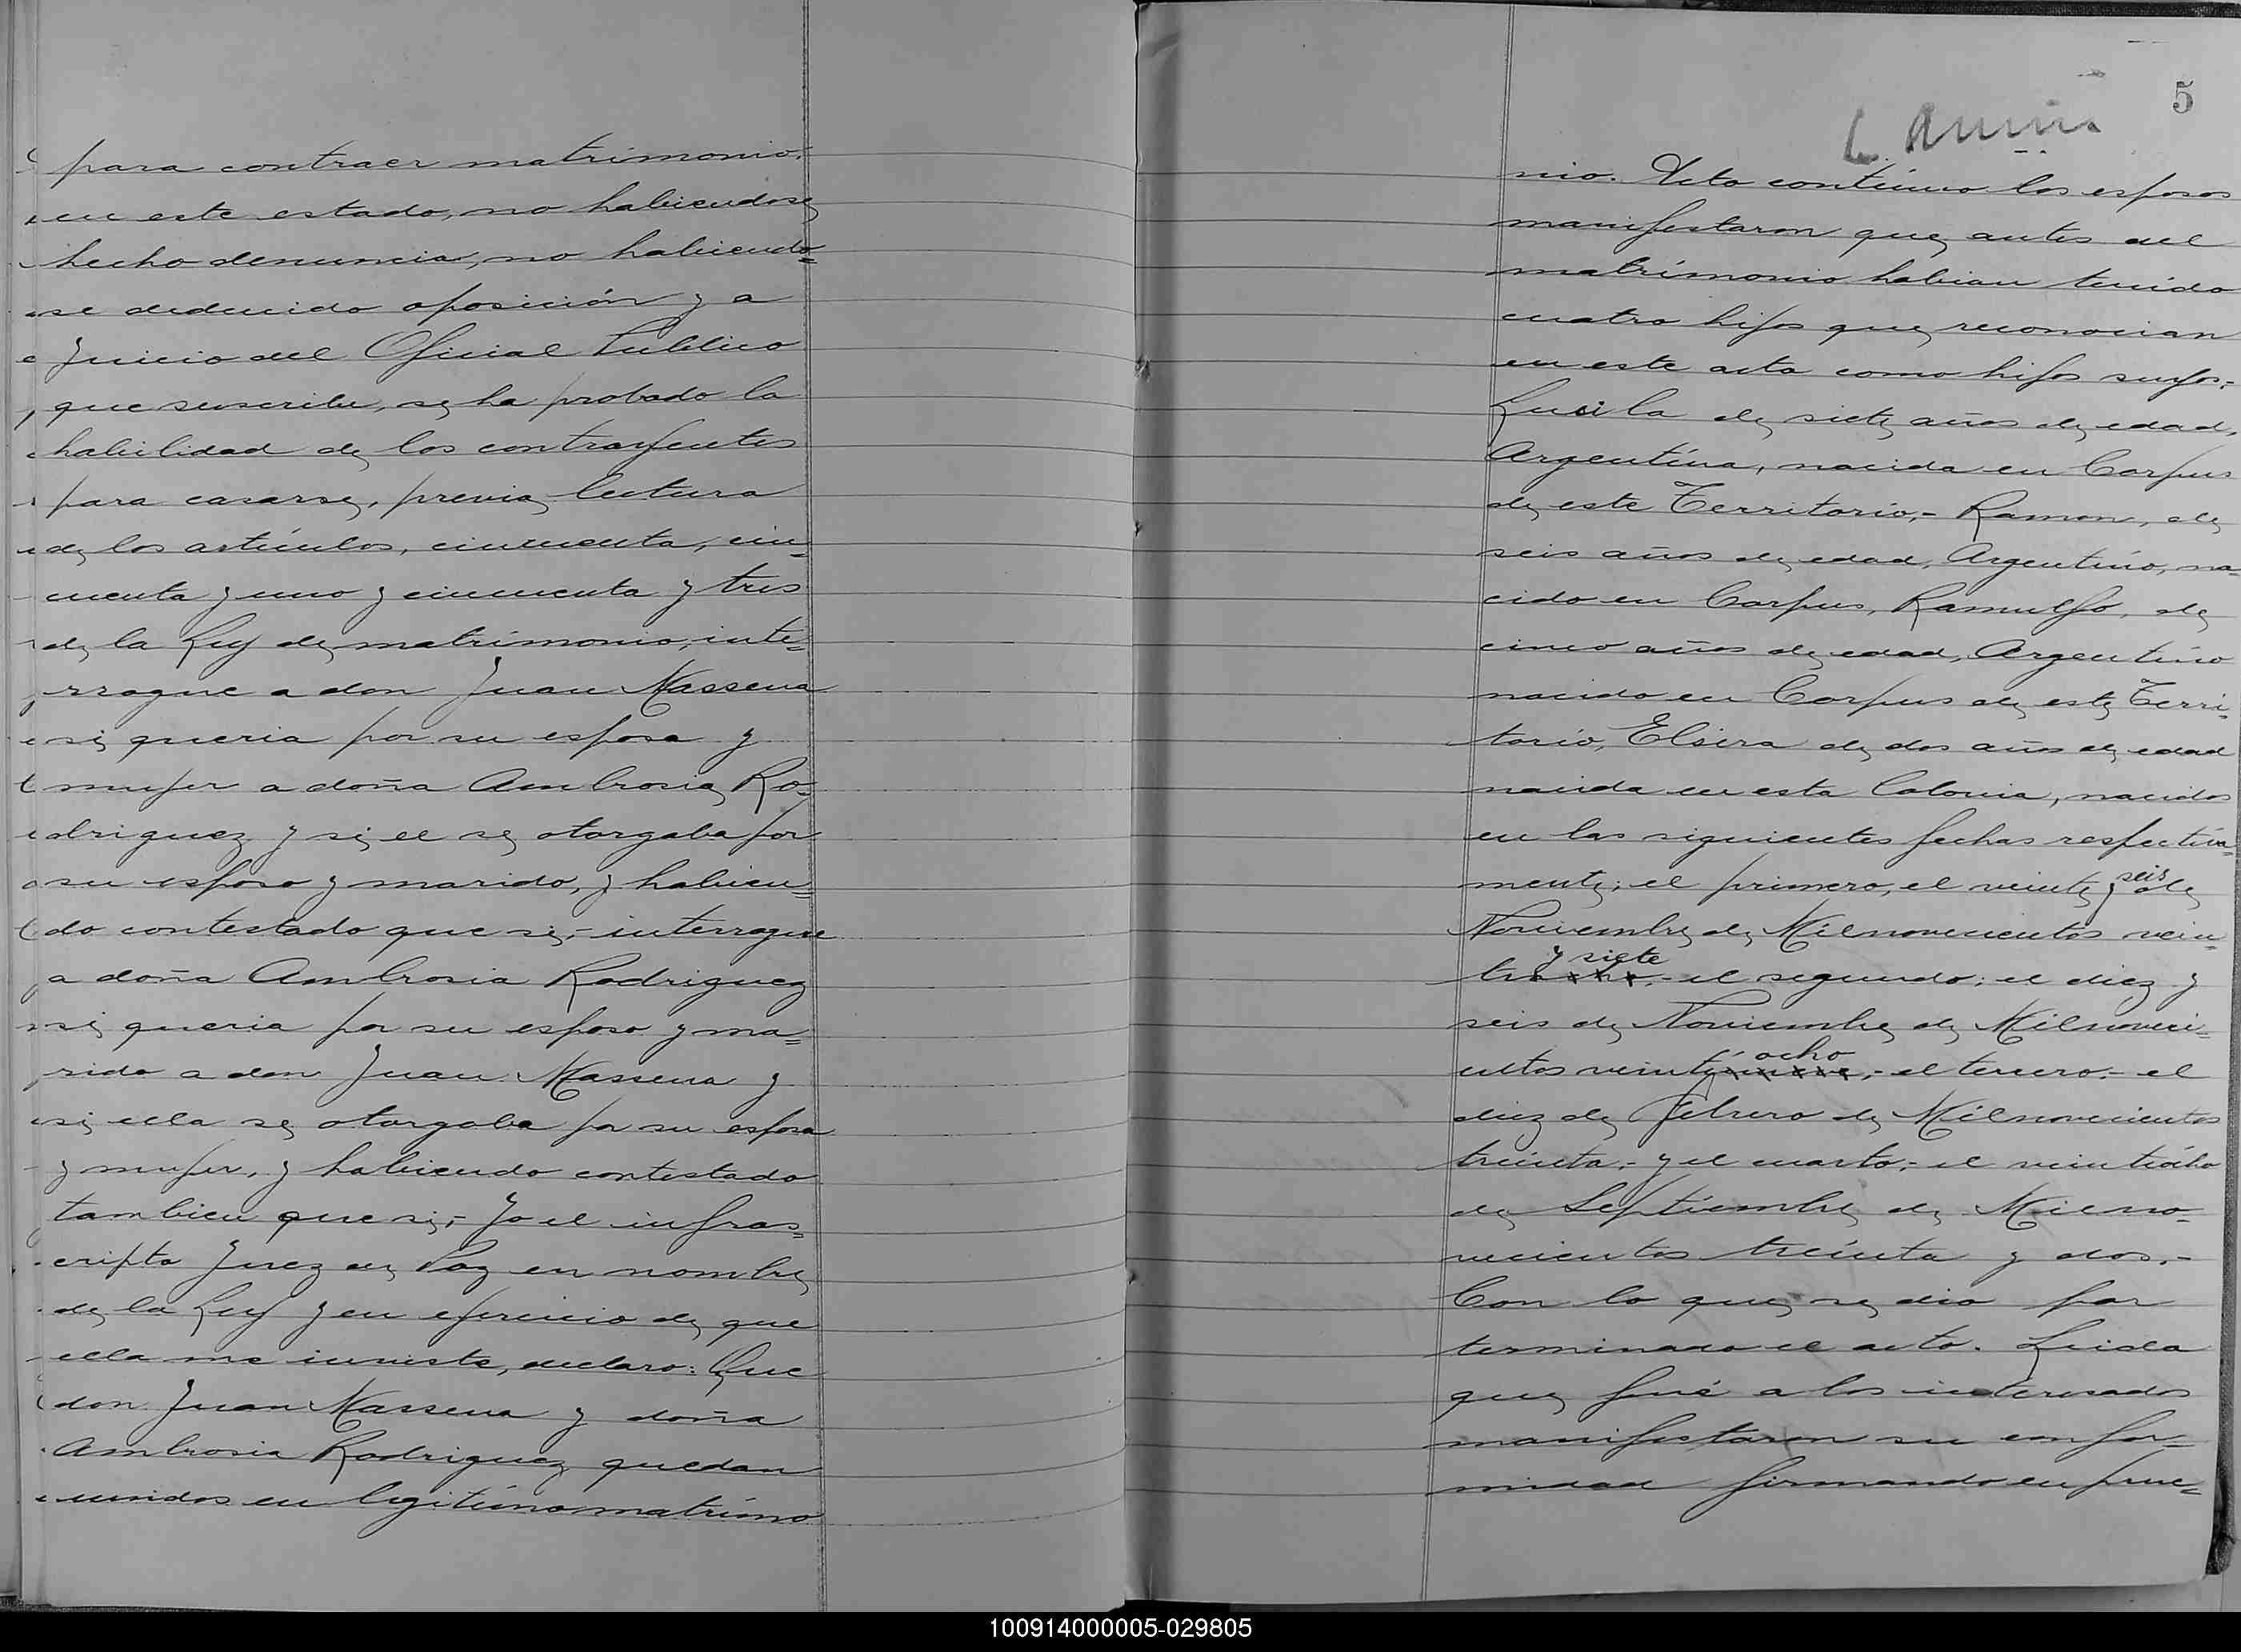 para contraer matrimonio.
en este estado, no habiendose
hecho denuncia, no habiendo=
se deducido oposición y a
Juicio del Oficial Publico
que suscribe, se ha probado la
habilidad de los contrayentes
para casarse, previa lectura
de los artículos, cincuenta, cin=
cuenta y uno y cincuenta y tres
de la Ley de matrimonio, inte=
rrogue a don Juan Massena
si queria por su esposa y
mujer a doña Ambrosia Ro=
driguez y si el se otorgaba por
su esposo y marido, y habien=
do contestado que si,- interrogue
a doña Ambrosia Rodriguez
si queria por su esposo y ma=
rido a don Juan Massena y
si ella se otorgaba por su esposa
y mujer, y habiendo contestado
tambien que si,- Yo el infras=
cripto Juez de Paz en nombre
de la Ley y en ejercicio de que
ella me inviste, declaro: Que
don Juan Massena y doña
Ambrosia Rodriguez quedan
unidos en legitimo matrimo
5
nio. Acto continuo los esposos
manifestaron que antes del
matrimonio habian tenido
cuatro hijos que reconocian
en este acta como hijos suyos:-
Lucila de siete años de edad,
Argentina, nacida en Corpus
de este Territorio,- Ramon, de
seis años de edad, Argentino, na=
cido en Corpus, Ramulfo, de
cinco años de edad, Argentino
nacido en Corpus de este Terri=
torio, Elsira de dos años de edad
nacida en esta Colonia, nacidos
en las siguientes fechas respectiva=
mente; el primero, el veinte y seis de
Noviembre de Milnovecientos vein=
y siete
te,- el segundo; el diez y
seis de Noviembre de Milnoveci=
ocho
entos veinti,- el tercero:- el
diez de Febrero de Milnovecientos
treinta,- y el cuarto,- el veintiocho
de Septiembre de Milno=
vecientos treinta y dos.-
Con lo que se dio por
terminado el acto. Leida
que fué a los interesados
manifestaron su confor=
midad firmando en prue=
100914000005-029805